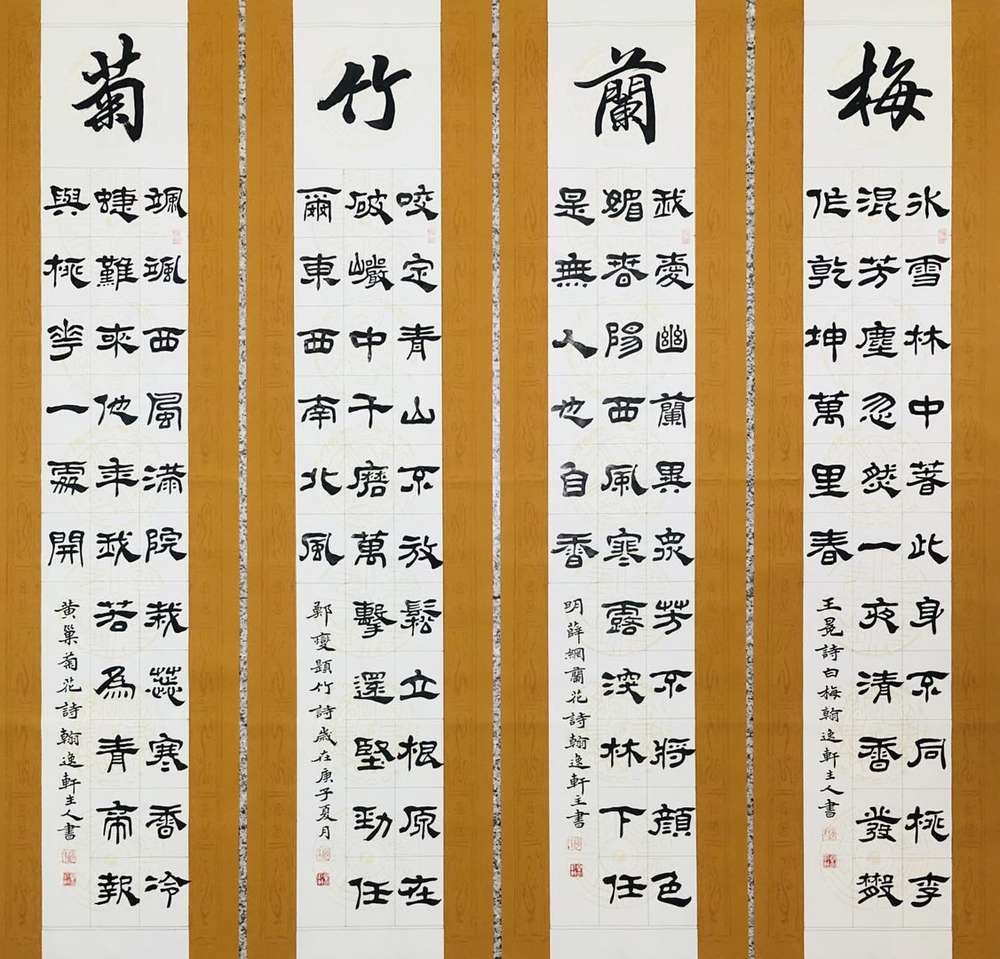 梅
冰雪林中著此身不同桃李
混芳塵忽然一夜清香發散
作乾坤萬里春
王冕詩白梅翰逸軒主人書
蘭
我愛幽蘭異衆芳不將顏色
媚春陽西風寒露深林下任
是無人也自香
明薛網蘭花詩翰逸軒主書
竹
咬定青山不放鬆立根原在
破巖中千磨萬擊還堅勁任
爾東西南北風
鄭燮題竹詩歲在庚子夏月
菊
颯颯西風滿院栽蕊寒香冷
蝶難來他年我若為青帝報
與桃花一處開
黃巢菊花詩翰逸軒主人書